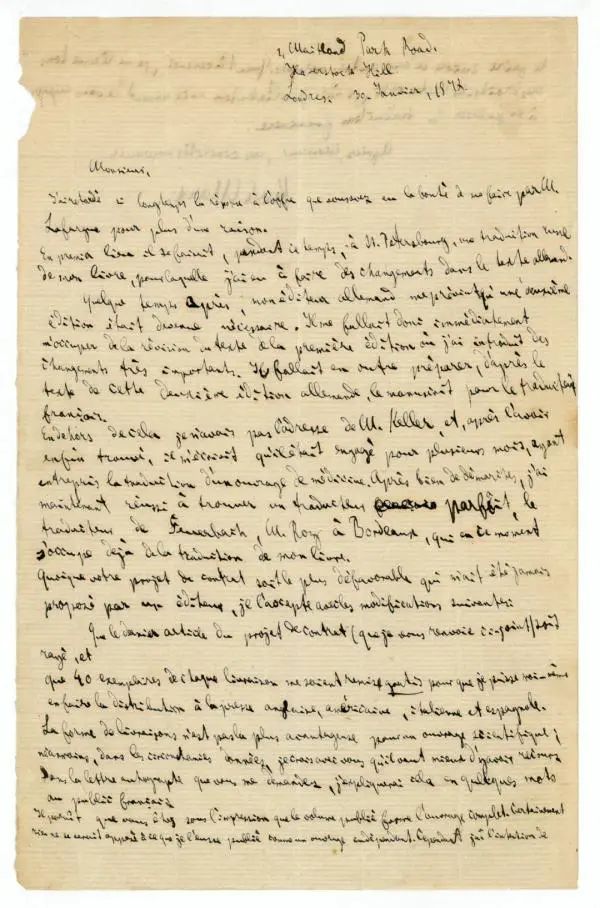 1, Maitland Park Road.
Haverstock Hill
Londres. 30 Janvier, 1872.
Monsieur,
J'ai retardé si longtemps la réponse à l'offre que vous avez eu la bonté de me faire par M.
Lafargue pour plus d'une raison.
En premier lieu il se faisait, pendant ce temps, à St. Petersbourg, une traduction russe
de mon livre, pour laquelle j'ai eu à faire des changements dans le texte allemand.
Quelque temps après, mon éditeur allemand me prévint qu'une deuxième
édition était devenue nécessaire. Il me fallait donc immédiatement
m'occuper de la révision du texte de la première édition où j'ai introduit des
changements très importants. Il fallait en outre préparer, d'après le
texte de cette deuxième édition allemande, le manuscrit pour le traducteur
français.
En dehors de cela je n'avais pas l'adresse de M. Keller, et, après l'avoir
enfin trouvé, il m'écrivait qu'il était engagé pour plusieurs mois, ayant
entrepris la traduction d'un ouvrage de médecine. Après bien de démarches, j'ai
maintenant réussi à trouver un traducteur parfait, le
traducteur de Feuerbach, M. Roy à Bordeaux, qui en ce moment
s'occupe déjà de la traduction de mon livre.
Quoique votre projet de contrat soit le plus défavorable qui m'ait été jamais
proposé par un éditeur, je l'accepte avec les modifications suivantes:
Que le dernier article du projet de contrat (que je vous renvoie ci-joint) soit
rayé, et
que 40 exemplaires de chaque livraison me soient remise gratis pour que je puisse moi-même
en faire la distribution à la presse anglaise, américaine, italienne et espagnole.
La forme de livraisons n'est pas la plus avantageuse pour un ouvrage scientifique;
néanmoins, dans les circonstances données, je crois avec vous qu'il vaut mieux d'y avoir recours.
Dans la lettre autographe que vous me demandez, j'expliquerai cela en quelques mots
au public français.
Il paraît que vous êtes sous l'impression que le volume publié forme l'ouvrage complet. Certainement
rien ne se serait opposé à ce que je l'eusse publié comme un ouvrage indépendant. Cependant j'ai l'intention de